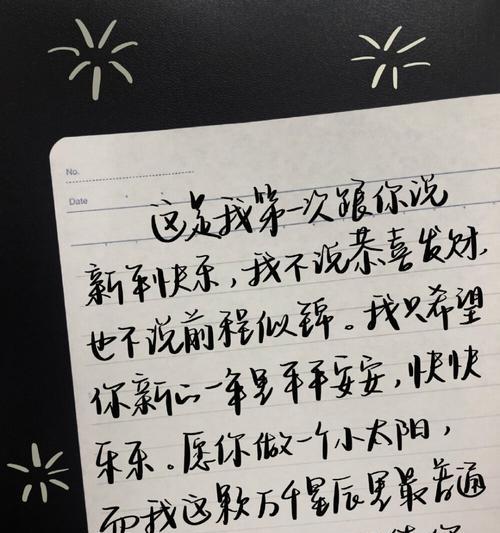 No.
Date
这是我第一次跟你说
新年快乐，我不说恭喜发财，
也不说前程似锦。我只希望
你新的一年里平平安安，快快
乐乐。愿你做一个小太阳，
而我这颗万千星辰里最普通